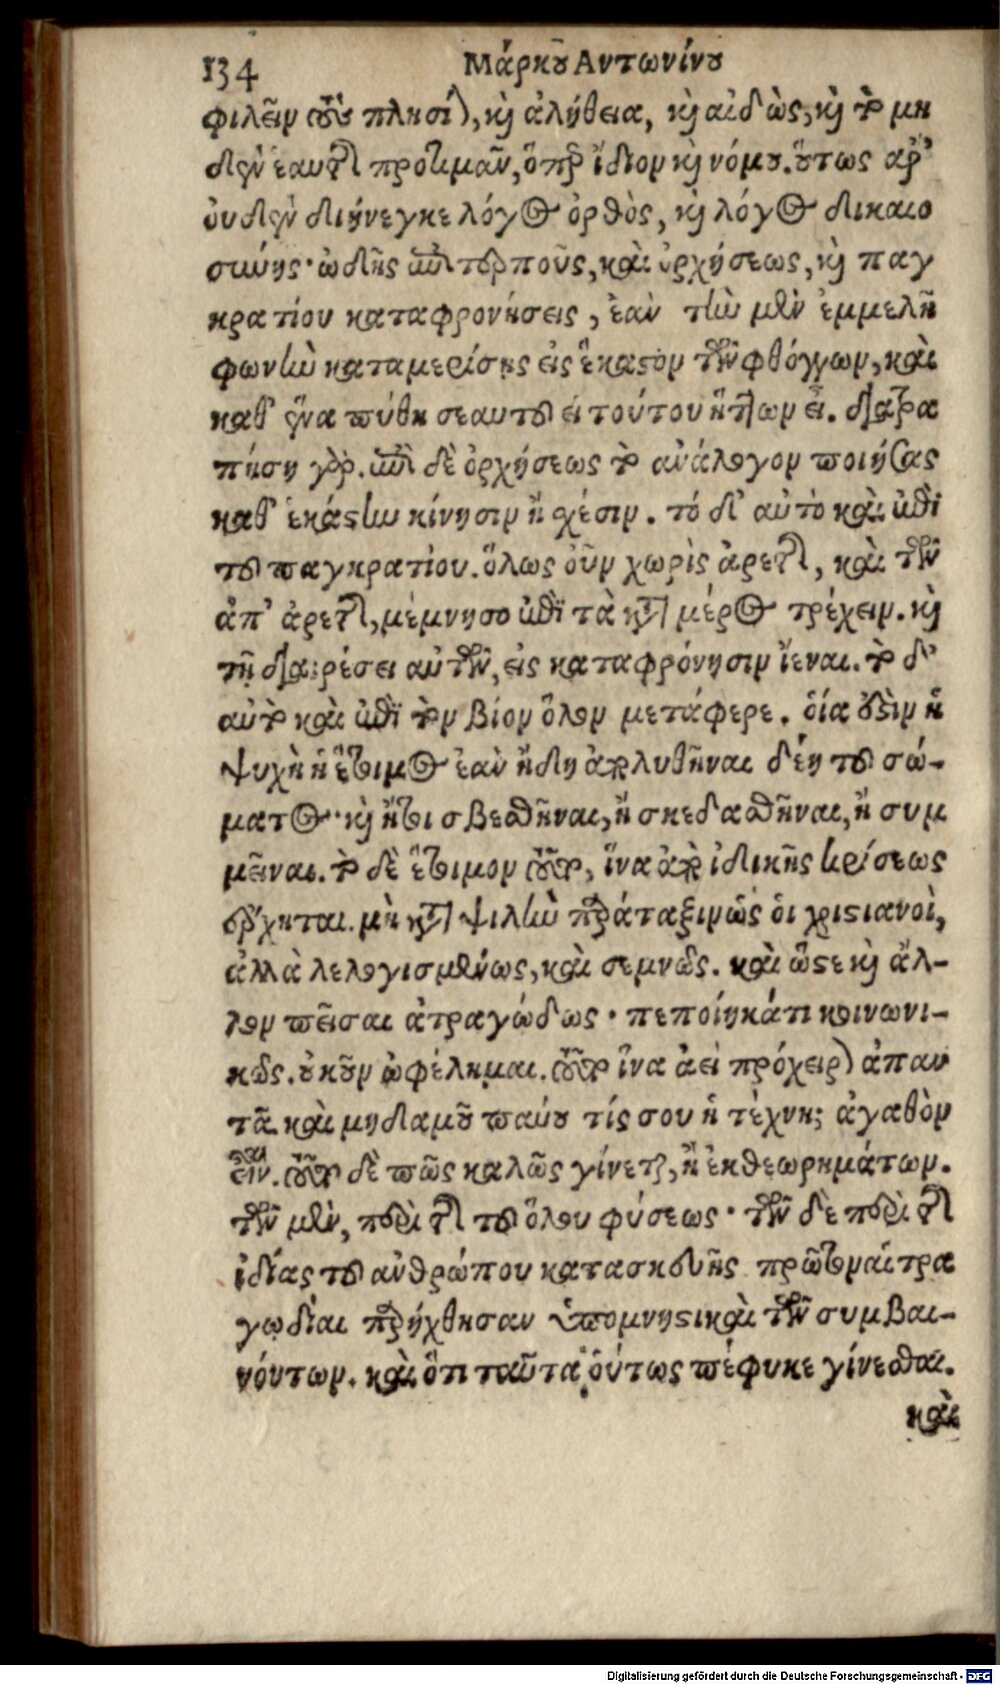 134 Μάρκου Αντωνίνου
φιλεῖν τοὺς πλησίον, καὶ ἀλήθεια, καὶ αἰδὼς, καὶ τὸ μη
δὲν ἑαυτῆς προτιμᾶν, ὅπερ ἴδιον καὶ νόμου. οὕτως ἀρ'
οὐδὲν διήνεγκε λόγος ὀρθὸς, καὶ λόγος δικαιο
σύνης· ὠδῆς ἐπιτερποῦς, καὶ ὀρχήσεως, καὶ παγ
κρατίου καταφρονήσεις, ἐὰν τὴν μὲν ἐμμελῆ
φωνὴν καταμερίσῃς εἰς ἕκαστον τῶν φθόγγων, καὶ
καθ' ἕνα πύθη σεαυτοῦ εἰ τούτου ἥττων εἶ. διατρα
πήση γὰρ. ἐπὶ δὲ ὀρχήσεως τὸ ἀνάλογον ποιήσας
καθ' ἑκάστην κίνησιν ἢ σχέσιν. τό δ' αὐτὸ καὶ ἐπὶ
τοῦ παγκρατίου. ὅλως οὖν χωρὶς ἀρετῆς, καὶ τῶν
ἀπ' ἀρετῆς, μέμνησο ἐπὶ τὰ κατὰ μέρος τρέχειν. καὶ
τῇ διαιρέσει αὐτῶν, εἰς καταφρόνησιν ἰέναι. τὸ δ'
αὐτὸ καὶ ἐπὶ τὸν βίον ὅλον μετάφερε. οἵα ἐστὶν ἡ
ψυχὴ ἡ ἕτοιμος ἐὰν ἤδη ἀπολυθῆναι δέῃ τοῦ σώ-
ματος· καὶ ἤτοι σβεσθῆναι, ἢ σκεδασθῆναι, ἢ συμ
μεῖναι. τὸ δὲ ἕτοιμον τοῦτο, ἵνα ἀπὸ ἰδικῆς κρίσεως
ἔρχηται. μὴ κατὰ ψιλὴν παράταξιν ὡς οἱ χριστιανοὶ,
ἀλλὰ λελογισμένως, καὶ σεμνῶς. καὶ ὥστε καὶ ἄλ-
λον πεῖσαι ἀτραγώδως· πεποίηκά τι κοινωνι-
κῶς. οὐκοῦν ὠφέλημαι. τοῦτο ἵνα ἀεὶ πρόχειρον ἀπαν
τᾶ. καὶ μηδαμοῦ παύου τίς σου ἡ τέχνη; ἀγαθὸν
εἶναι. τοῦτο δὲ πῶς καλῶς γίνεται, ἢ ἐκ θεωρημάτων.
τῶν μὲν, περὶ τῆς τοῦ ὅλου φύσεως· τῶν δὲ περὶ τῆς
ἰδίας τοῦ ἀνθρώπου κατασκευῆς. πρῶτον αἱ τρα
γῳδίαι παρήχθησαν ὑπομνηστικαὶ τῶν συμβαι-
νόντων. καὶ ὅτι ταῦτα οὕτως πέφυκε γίνεσθαι.
καὶ
Digitalisierung gefördert durch die Deutsche Forschungsgemeinschaft - DFG